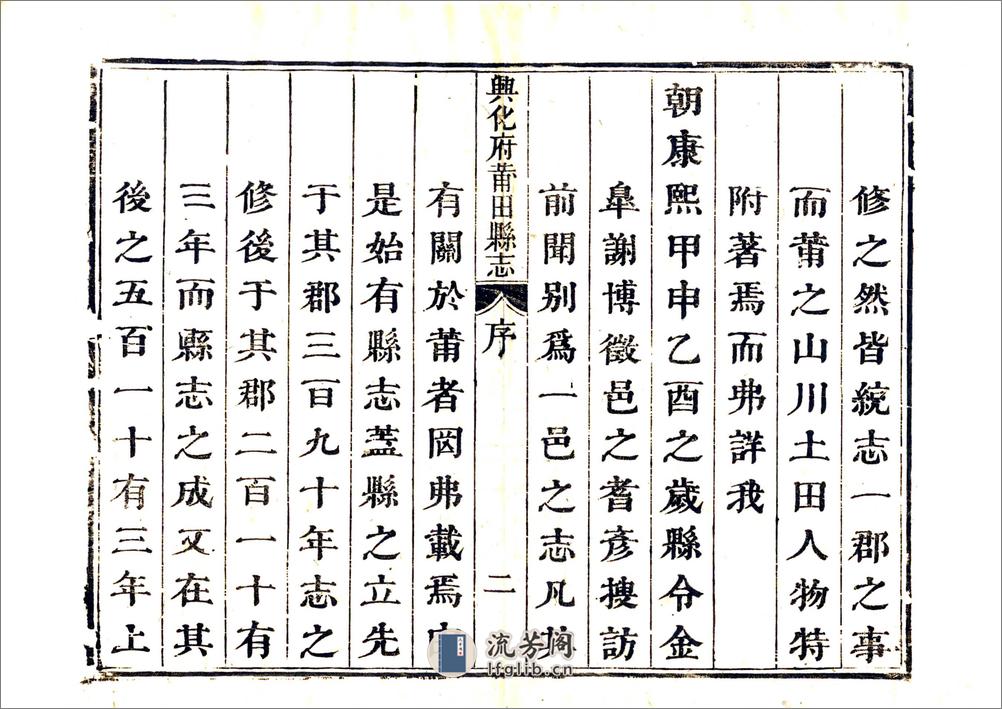 修之然皆統志一郡之事
而莆之山川土田人物特
附著焉而弗詳我
朝康熙甲申乙酉之歲縣令金
臯謝博徵邑之耆彥搜訪
前聞別爲一邑之志凡
興化府莆田縣志
序
二
有關於莆者罔弗載焉
是始有縣志蓋縣之立先
于其郡三百九十年志之
修後于其郡二百一十有
三年而縣志之成又在其
後之五百一十有三年上
流芳阁
lfglib.cn